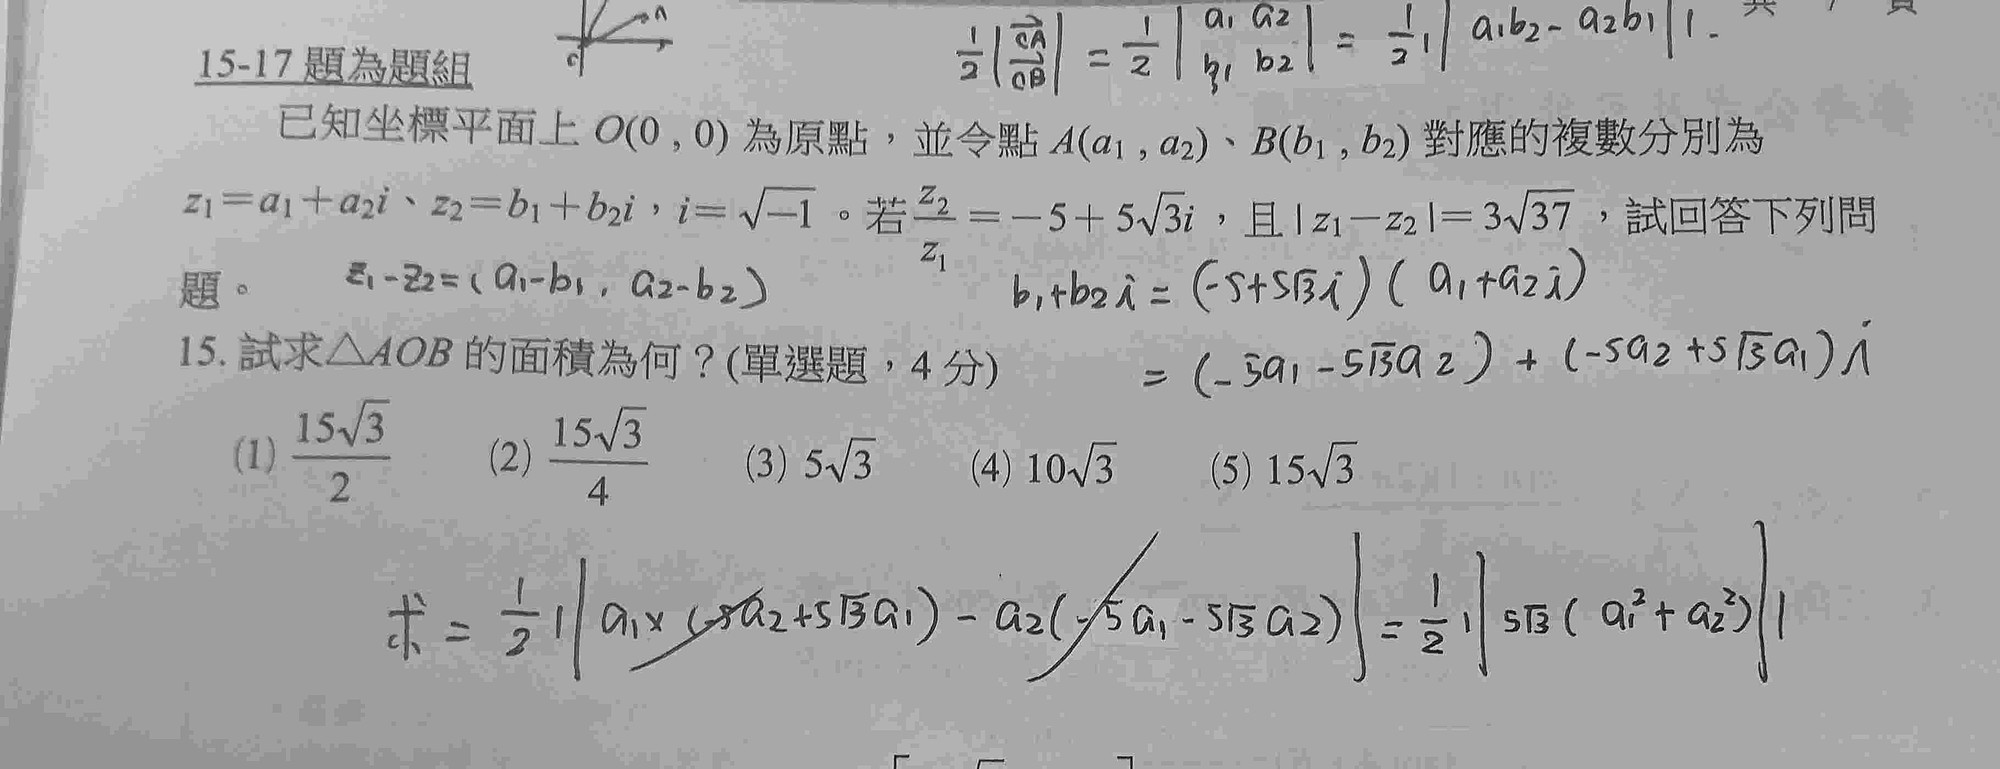 共 7 頁
½|OA⃗ / OB⃗| = ½|a₁ a₂ / b₁ b₂| = ½||a₁b₂-a₂b₁||.
15-17 題為題組
已知坐標平面上 O(0 , 0) 為原點，並令點 A(a₁ , a₂)、B(b₁ , b₂) 對應的複數分別為
z₁=a₁+a₂i、z₂=b₁+b₂i，i=√−1。若 z₂/z₁ =−5+5√3i，且 | z₁−z₂ |=3√37，試回答下列問
題。
z₁-z₂=( a₁-b₁, a₂-b₂)
b₁+b₂i = (-5+5√3i) ( a₁+a₂i)
15. 試求△AOB 的面積為何？(單選題，4 分)
= (-5a₁-5√3a₂) + (-5a₂+5√3a₁)i
(1) 15√3/2 (2) 15√3/4 (3) 5√3 (4) 10√3 (5) 15√3
求 = ½||a₁×(-5a₂+5√3a₁) - a₂(-5a₁-5√3a₂)| = ½||5√3( a₁²+a₂²)||